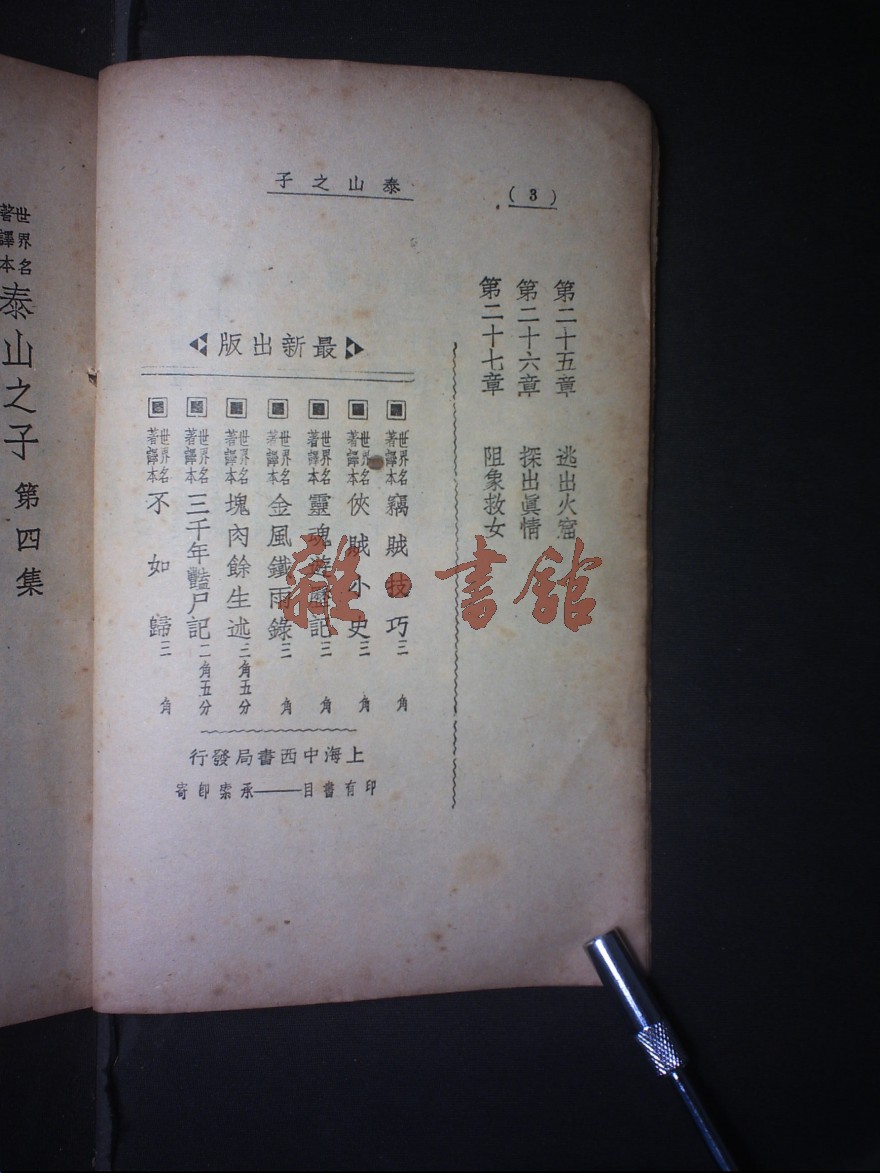 (3)
泰山之子
第二十五章 逃出火窟
第二十六章 探出眞情
第二十七章 阻象救女
最新出版
世界名著譯本 竊賊技巧 三角
世界名著譯本 俠賊小史 三角
世界名著譯本 靈魂遊歷記 三角
世界名著譯本 金風鐵雨錄 三角
世界名著譯本 塊肉餘生述 三角五分
世界名著譯本 三千年豔尸記 二角五分
世界名著譯本 不如歸 三角
上海中西書局發行
印有書目——承索卽寄
世界名著譯本 泰山之子 第四集
雜·書館